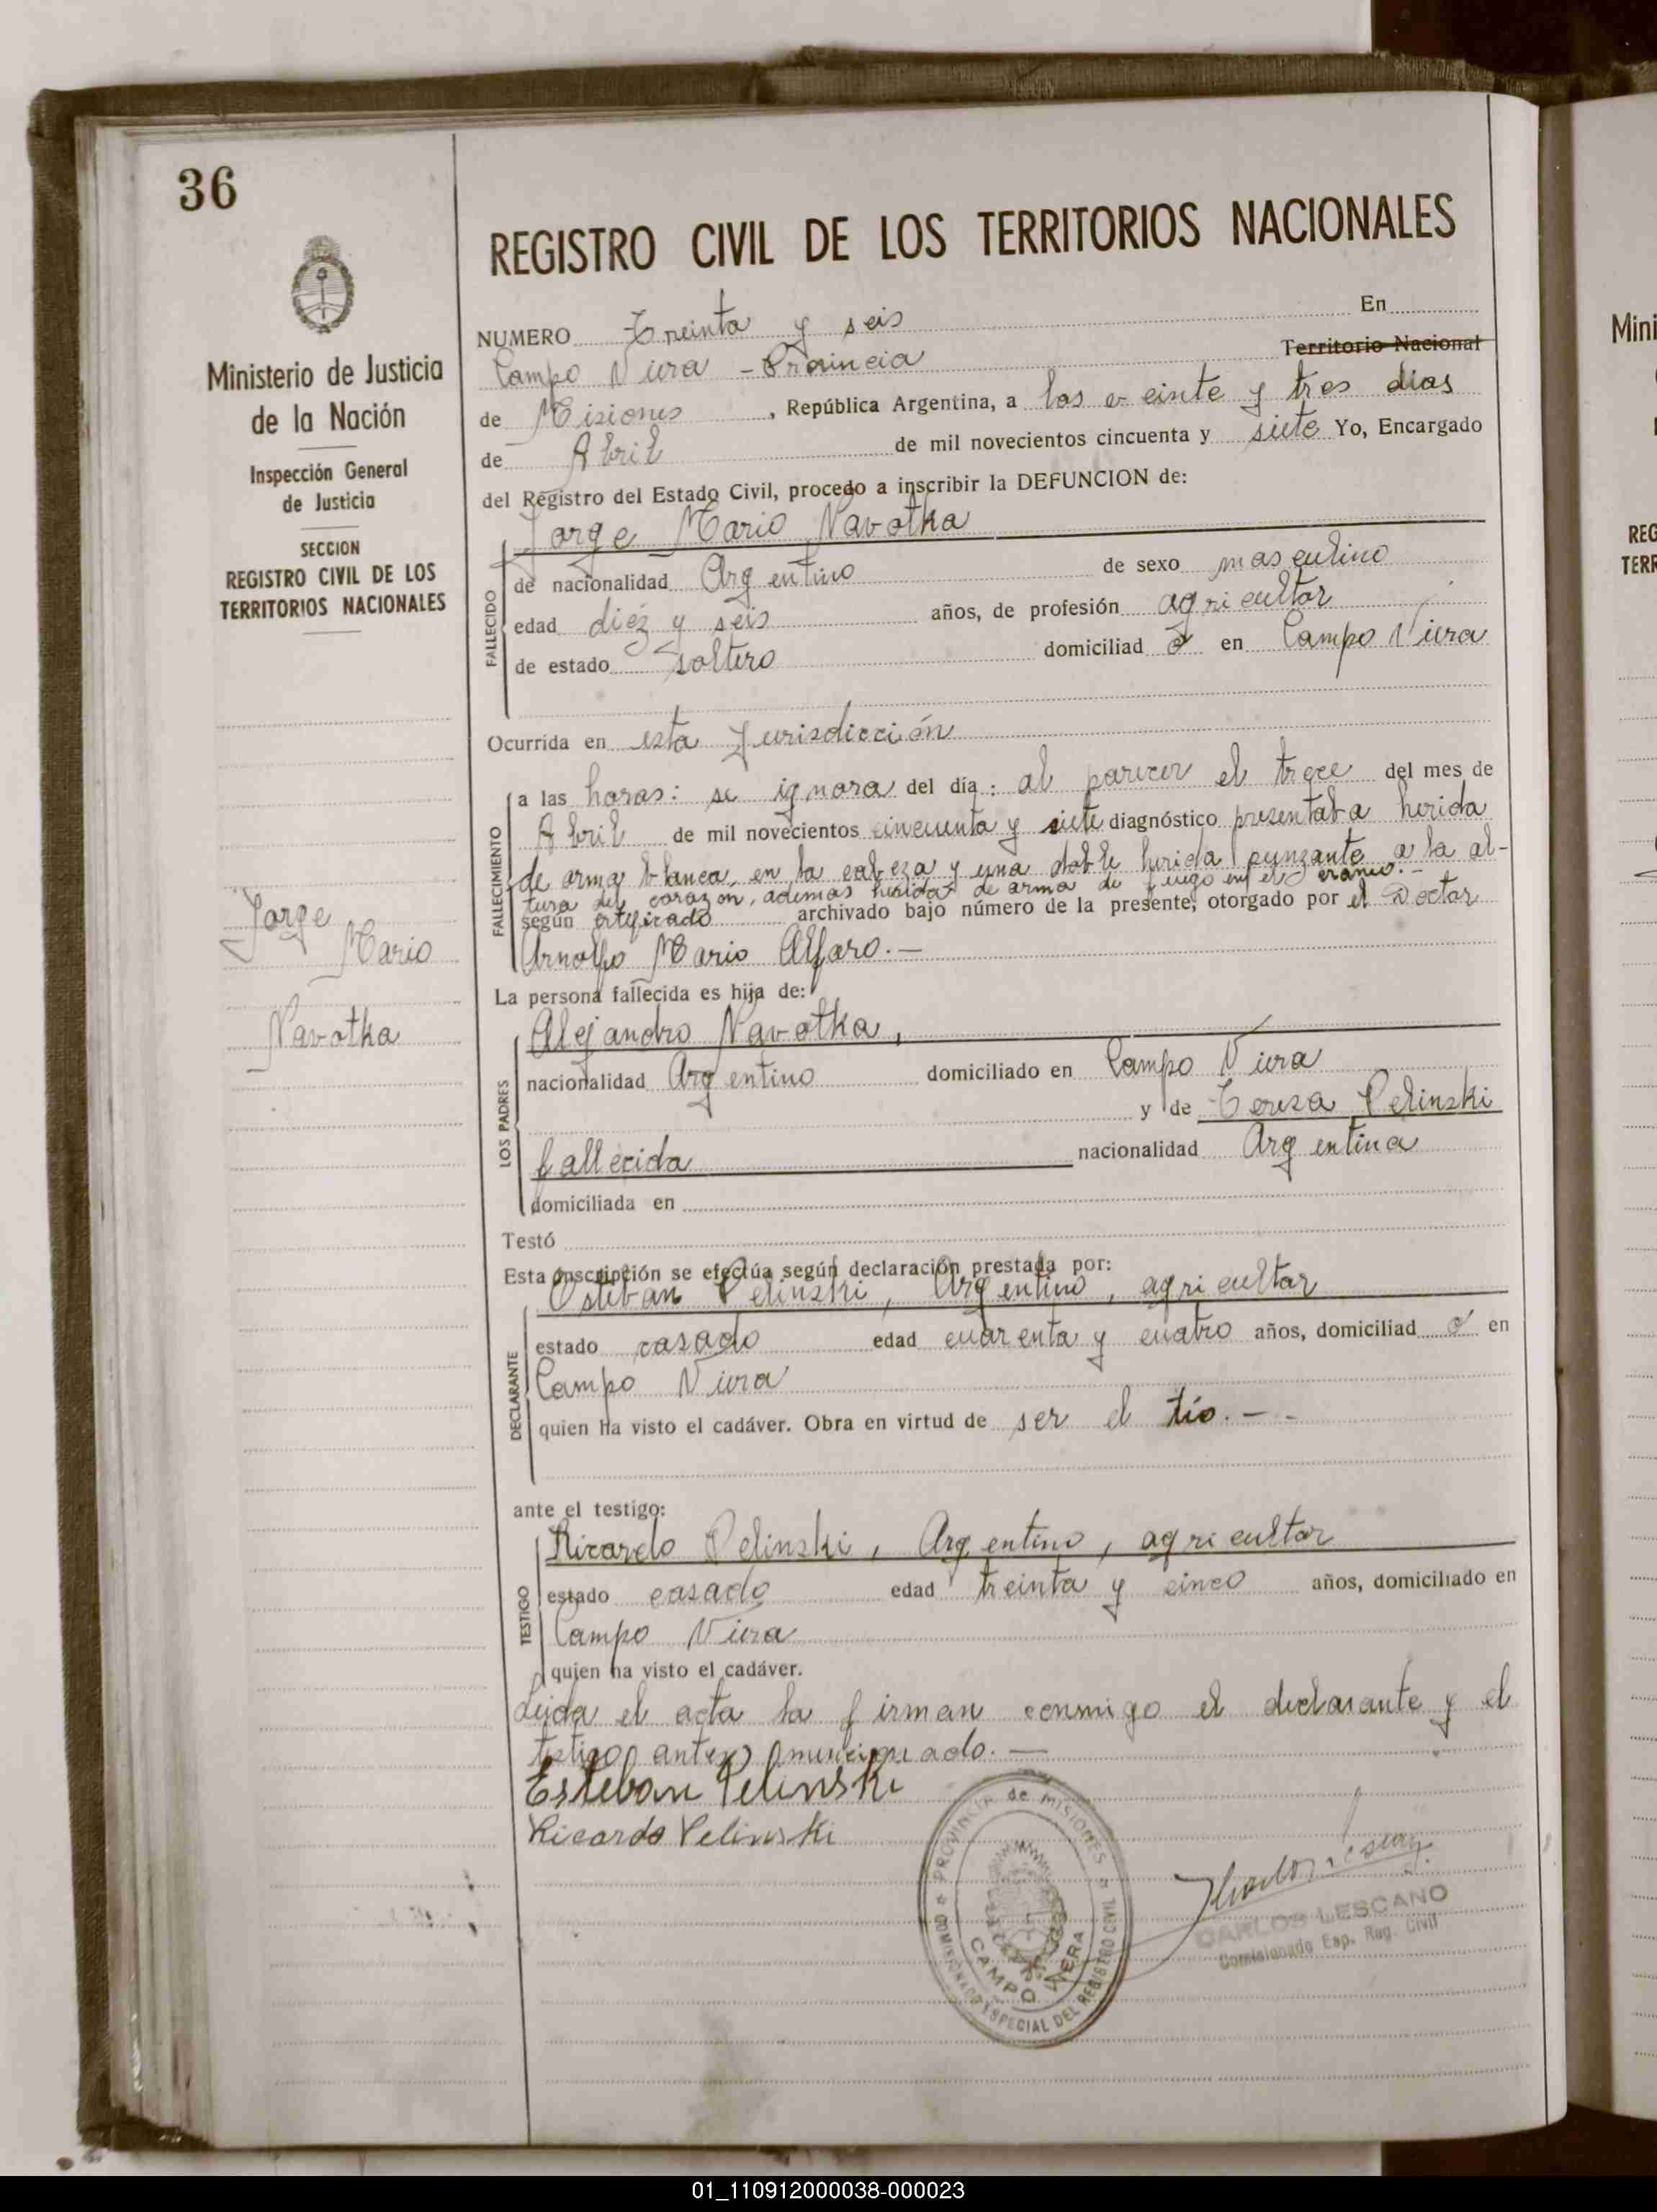 36
Ministerio de Justicia
de la Nación
Inspección General
de Justicia
SECCION
REGISTRO CIVIL DE LOS
TERRITORIOS NACIONALES
Jorge
Mario
Navotka
REGISTRO CIVIL DE LOS TERRITORIOS NACIONALES
NUMERO Treinta y seis En
Campo Viera - Provincia Territorio Nacional
de Misiones, República Argentina, a los veinte y tres días
de Abril de mil novecientos cincuenta y siete Yo, Encargado
del Registro del Estado Civil, procedo a inscribir la DEFUNCION de:
Jorge Mario Navotka
FALLECIDO
de nacionalidad Argentino de sexo masculino
edad diéz y seis años, de profesión agricultor
de estado soltero domiciliad o en Campo Viera
Ocurrida en esta Jurisdicción
FALLECIMIENTO
a las horas: se ignora del día: al parecer el trece del mes de
Abril de mil novecientos cincuenta y siete diagnóstico presentaba herida
de arma blanca, en la cabeza y una doble herida punzante a la al-
tura del corazon, ademas heridas de arma de fuego en el craneo.-
según certificado archivado bajo número de la presente, otorgado por el Doctor
Arnolfo Mario Alfaro.-
La persona fallecida es hija de:
LOS PADRES
Alejandro Navotka,
nacionalidad Argentino domiciliado en Campo Viera
y de Teresa Pelinski
fallecida nacionalidad Argentina
domiciliada en
Testó
Esta inscripción se efectúa según declaración prestada por:
DECLARANTE
Esteban Pelinski, Argentino, agricultor
estado casado edad cuarenta y cuatro años, domiciliad o en
Campo Viera
quien ha visto el cadáver. Obra en virtud de ser el tío.- -
ante el testigo:
TESTIGO
Ricardo Pelinski, Argentino, agricultor
estado casado edad treinta y cinco años, domiciliado en
Campo Viera
quien ha visto el cadáver.
Leida el acta la firman conmigo el declarante y el
testigo antes mencionado.-
Esteban Pelinski
Ricardo Pelinski
PROVINCIA de MISIONES
COMISIONADO ESPECIAL DEL REGISTRO CIVIL
CAMPO VIERA
CARLOS LESCANO
Comisionado Esp. Reg. Civil
Mini
REG
TERR
01_110912000038-000023